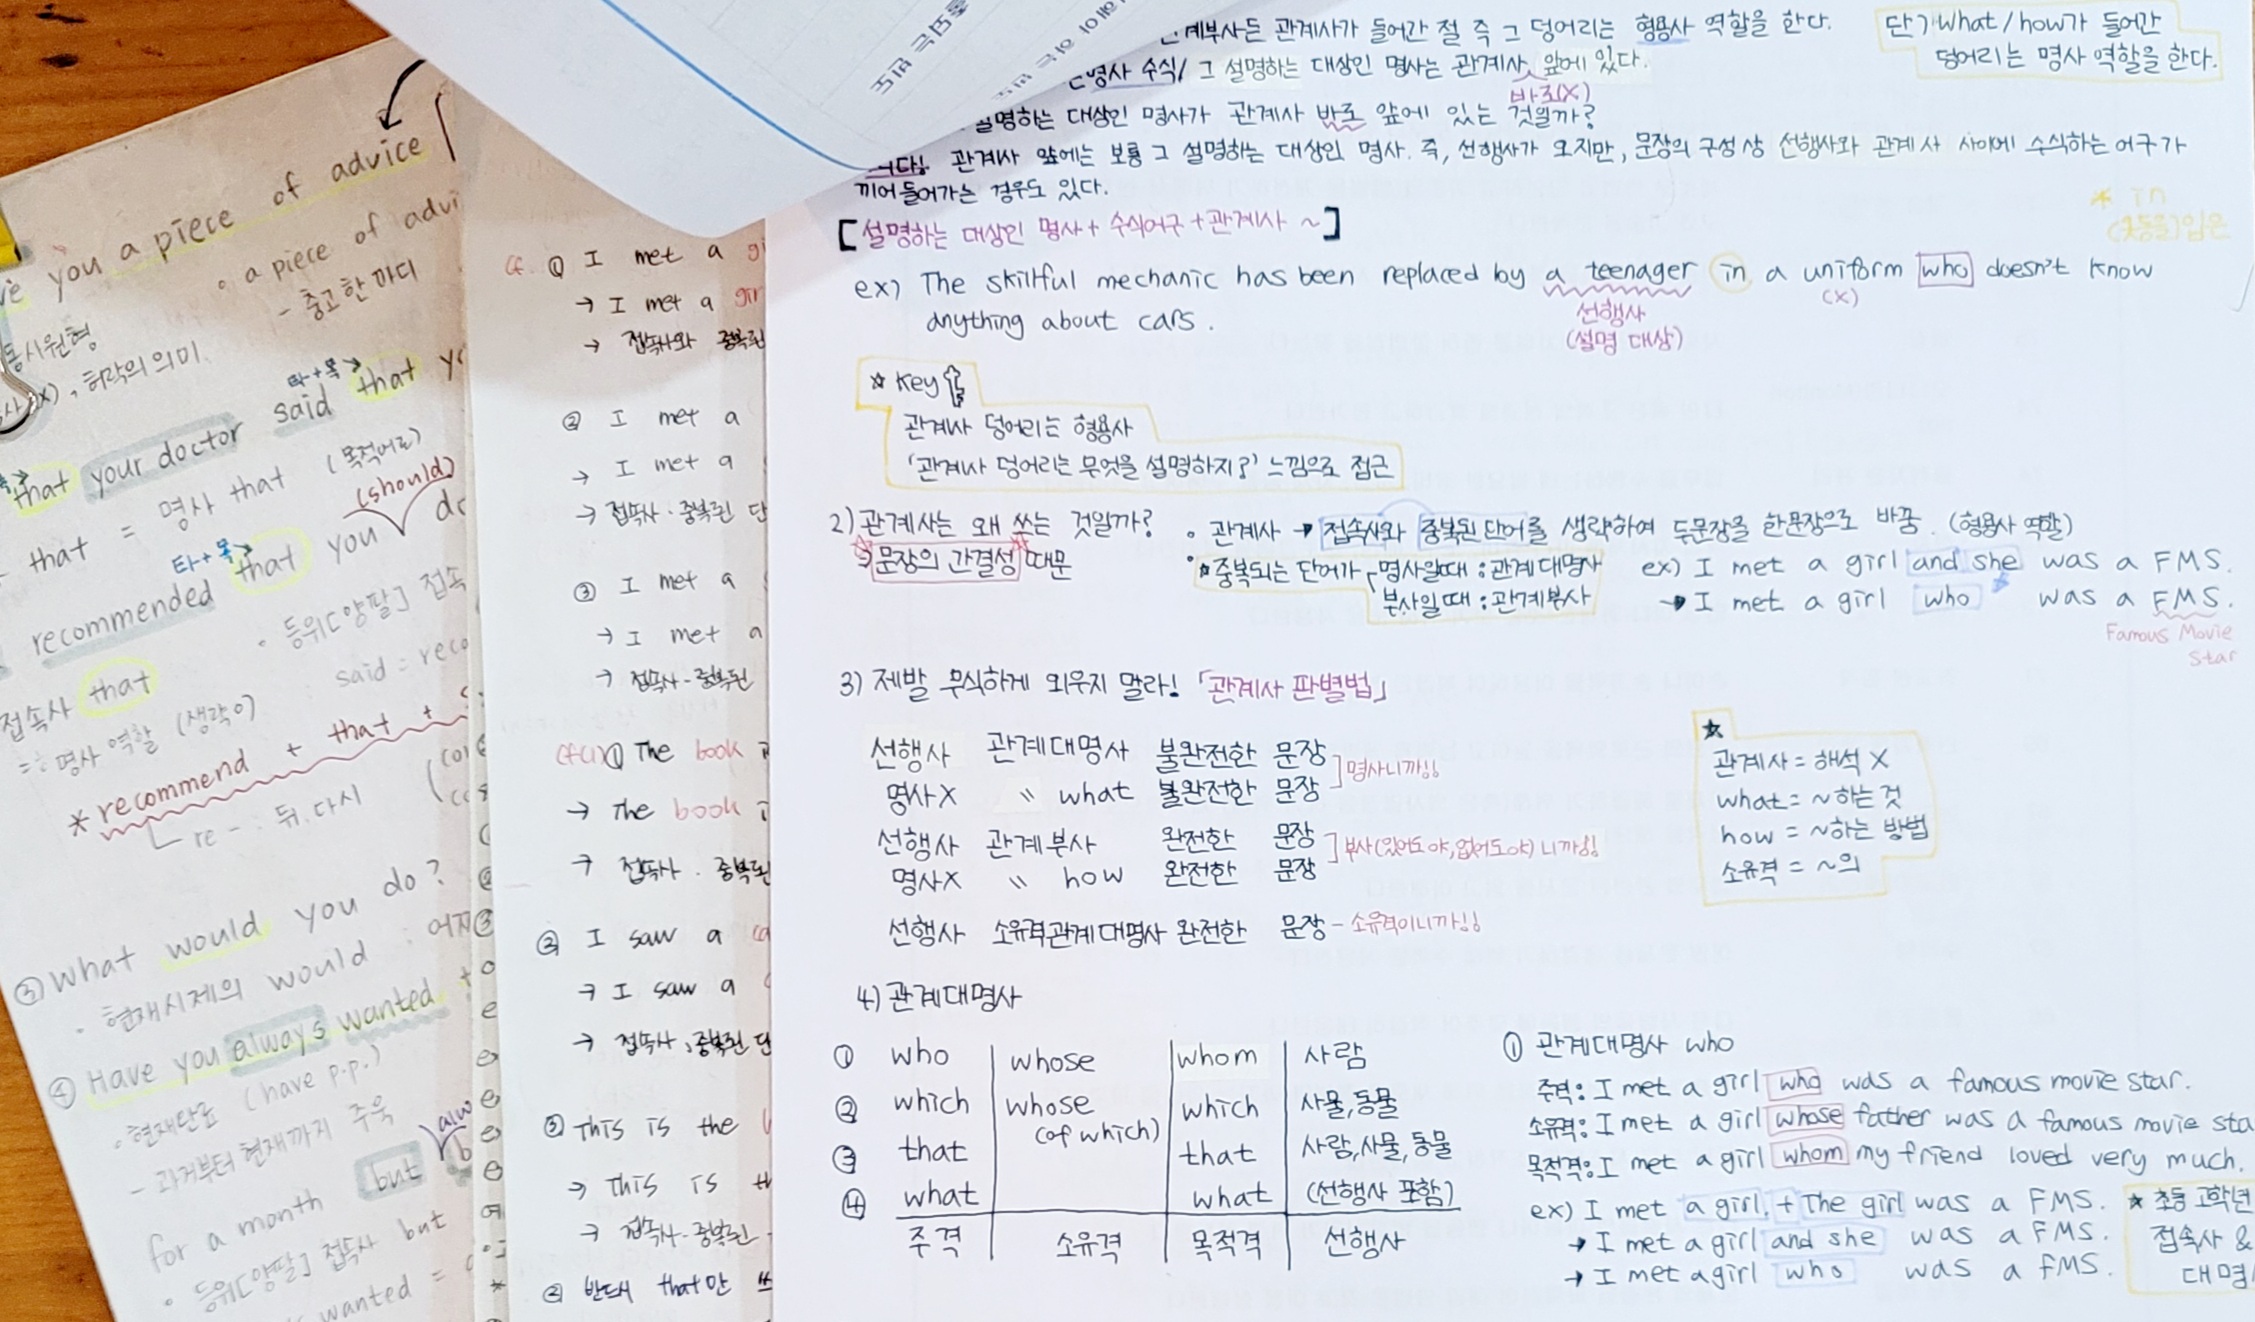 you a piece of advice
a piece of advi
- 충고 한 마디
동사원형
(X), 허락의 의미.
타+목→
that your doctor said that
that = 명사 that (목적어로)
(should)
타+목→
recommended that you
• 등위[양팔] 접속
said = reco
접속사 that
= 명사 역할 (생략 o)
* recommend + that +
re- : 뒤, 다시
③ What would you do?
• 현재시제의 would
④ Have you always wanted
• 현재완료 (have p.p.)
- 과거부터 현재까지 주욱
for a month but
• 등위[양팔] 접속사 but
wanted =
cf. ① I met a
→ I met a
→ 접속사와 중복된
② I met a
→ I met a
→ 접속사 · 중복된 단
③ I met a
→ I met a
→ 접속사 - 중복된
① The book
→ The book
→ 접속사 · 중복된
② I saw a
→ I saw a
→ 접속사, 중복된 단
③ This is the
→ This is
→ 접속사 - 중복된
② 반드시 that만 쓰
관계사가 들어간 절 즉 그 덩어리는 형용사 역할을 한다.
단, what/how가 들어간
덩어리는 명사 역할을 한다.
명사 수식/ 그 설명하는 대상인 명사는 관계사 앞에 있다.
바로(X)
설명하는 대상인 명사가 관계사 바로 앞에 있는 것일까?
관계사 앞에는 보통 그 설명하는 대상인 명사. 즉, 선행사가 오지만, 문장의 구성 상 선행사와 관계사 사이에 수식하는 어구가
끼어 들어가는 경우도 있다.
[설명하는 대상인 명사 + 수식어구 + 관계사 ~]
* in
(옷 등을)입은
ex) The skillful mechanic has been replaced by a teenager in a uniform who doesn't know
(X)
anything about cars.
선행사
(설명 대상)
☆ Key
관계사 덩어리는 형용사
'관계사 덩어리는 무엇을 설명하지?' 느낌으로 접근
2) 관계사는 왜 쓰는 것일까?
→ 문장의 간결성 때문
• 관계사 → 접속사와 중복된 단어를 생략하여 두문장을 한문장으로 바꿈. (형용사 역할)
• ★중복되는 단어가 명사일때 : 관계대명사
부사일때 : 관계부사
ex) I met a girl and she was a FMS.
→ I met a girl who was a FMS.
Famous Movie
Star
3) 제발 무식하게 외우지 말라! 「관계사 판별법」
선행사 관계대명사 불완전한 문장
명사X 〃 what 불완전한 문장
] 명사니까!!
선행사 관계부사 완전한 문장
명사X 〃 how 완전한 문장
] 부사(있어도 야, 없어도 야) 니까!!
선행사 소유격관계대명사 완전한 문장 - 소유격이니까!!
★
관계사 = 해석 X
what = ~하는 것
how = ~하는 방법
소유격 = ~의
4) 관계대명사
① who whose whom 사람
② which whose (of which) which 사물, 동물
③ that that 사람, 사물, 동물
④ what what (선행사 포함)
주격 소유격 목적격 선행사
① 관계대명사 who
주격: I met a girl who was a famous movie star.
소유격: I met a girl whose father was a famous movie sta
목적격: I met a girl whom my friend loved very much.
ex) I met a girl. + The girl was a FMS.
→ I met a girl and she was a FMS.
→ I met a girl who was a FMS.
★ 초등 고학년
접속사 &
대명